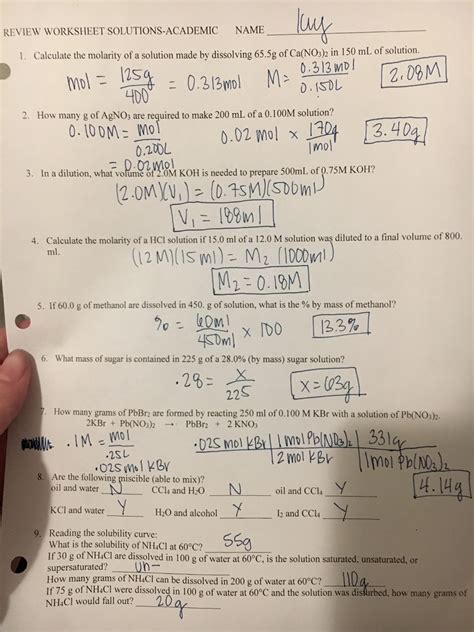 REVIEW WORKSHEET SOLUTIONS-ACADEMIC NAME Key
1. Calculate the molarity of a solution made by dissolving 65.5g of Ca(NO3)2 in 150 mL of solution.
mol = 125g / 400 = 0.313mol M = 0.313mol / 0.150L 2.08M
2. How many g of AgNO3 are required to make 200 mL of a 0.100M solution?
0.100M = mol / 0.200L 0.02 mol x 170g / 1mol 3.40g
= 0.02mol
3. In a dilution, what volume of 2.0M KOH is needed to prepare 500mL of 0.75M KOH?
(2.0M)(V1) = (0.75M)(500ml)
V1 = 188ml
4. Calculate the molarity of a HCl solution if 15.0 ml of a 12.0 M solution was diluted to a final volume of 800.
ml.
(12M)(15ml) = M2 (1000ml)
M2 = 0.18M
5. If 60.0 g of methanol are dissolved in 450. g of solution, what is the % by mass of methanol?
% = 60ml / 450ml x 100 13.3%
6. What mass of sugar is contained in 225 g of a 28.0% (by mass) sugar solution?
.28 = x / 225 x = 63g
7. How many grams of PbBr2 are formed by reacting 250 ml of 0.100 M KBr with a solution of Pb(NO3)2.
2KBr + Pb(NO3)2 → PbBr2 + 2 KNO3
.1M = mol / .25L .025 mol KBr 1 mol Pb(NO3)2 331g
.025 mol KBr 2 mol KBr 1 mol Pb(NO3)2
8. Are the following miscible (able to mix)? 4.14g
oil and water N CCl4 and H2O N oil and CCl4 Y
KCl and water Y H2O and alcohol Y I2 and CCl4 Y
9. Reading the solubility curve:
What is the solubility of NH4Cl at 60°C? 55g
If 30 g of NH4Cl are dissolved in 100 g of water at 60°C, is the solution saturated, unsaturated, or
supersaturated? un-
How many grams of NH4Cl can be dissolved in 200 g of water at 60°C? 110g
If 75 g of NH4Cl were dissolved in 100 g of water at 60°C and the solution was disturbed, how many grams of
NH4Cl would fall out? 20g